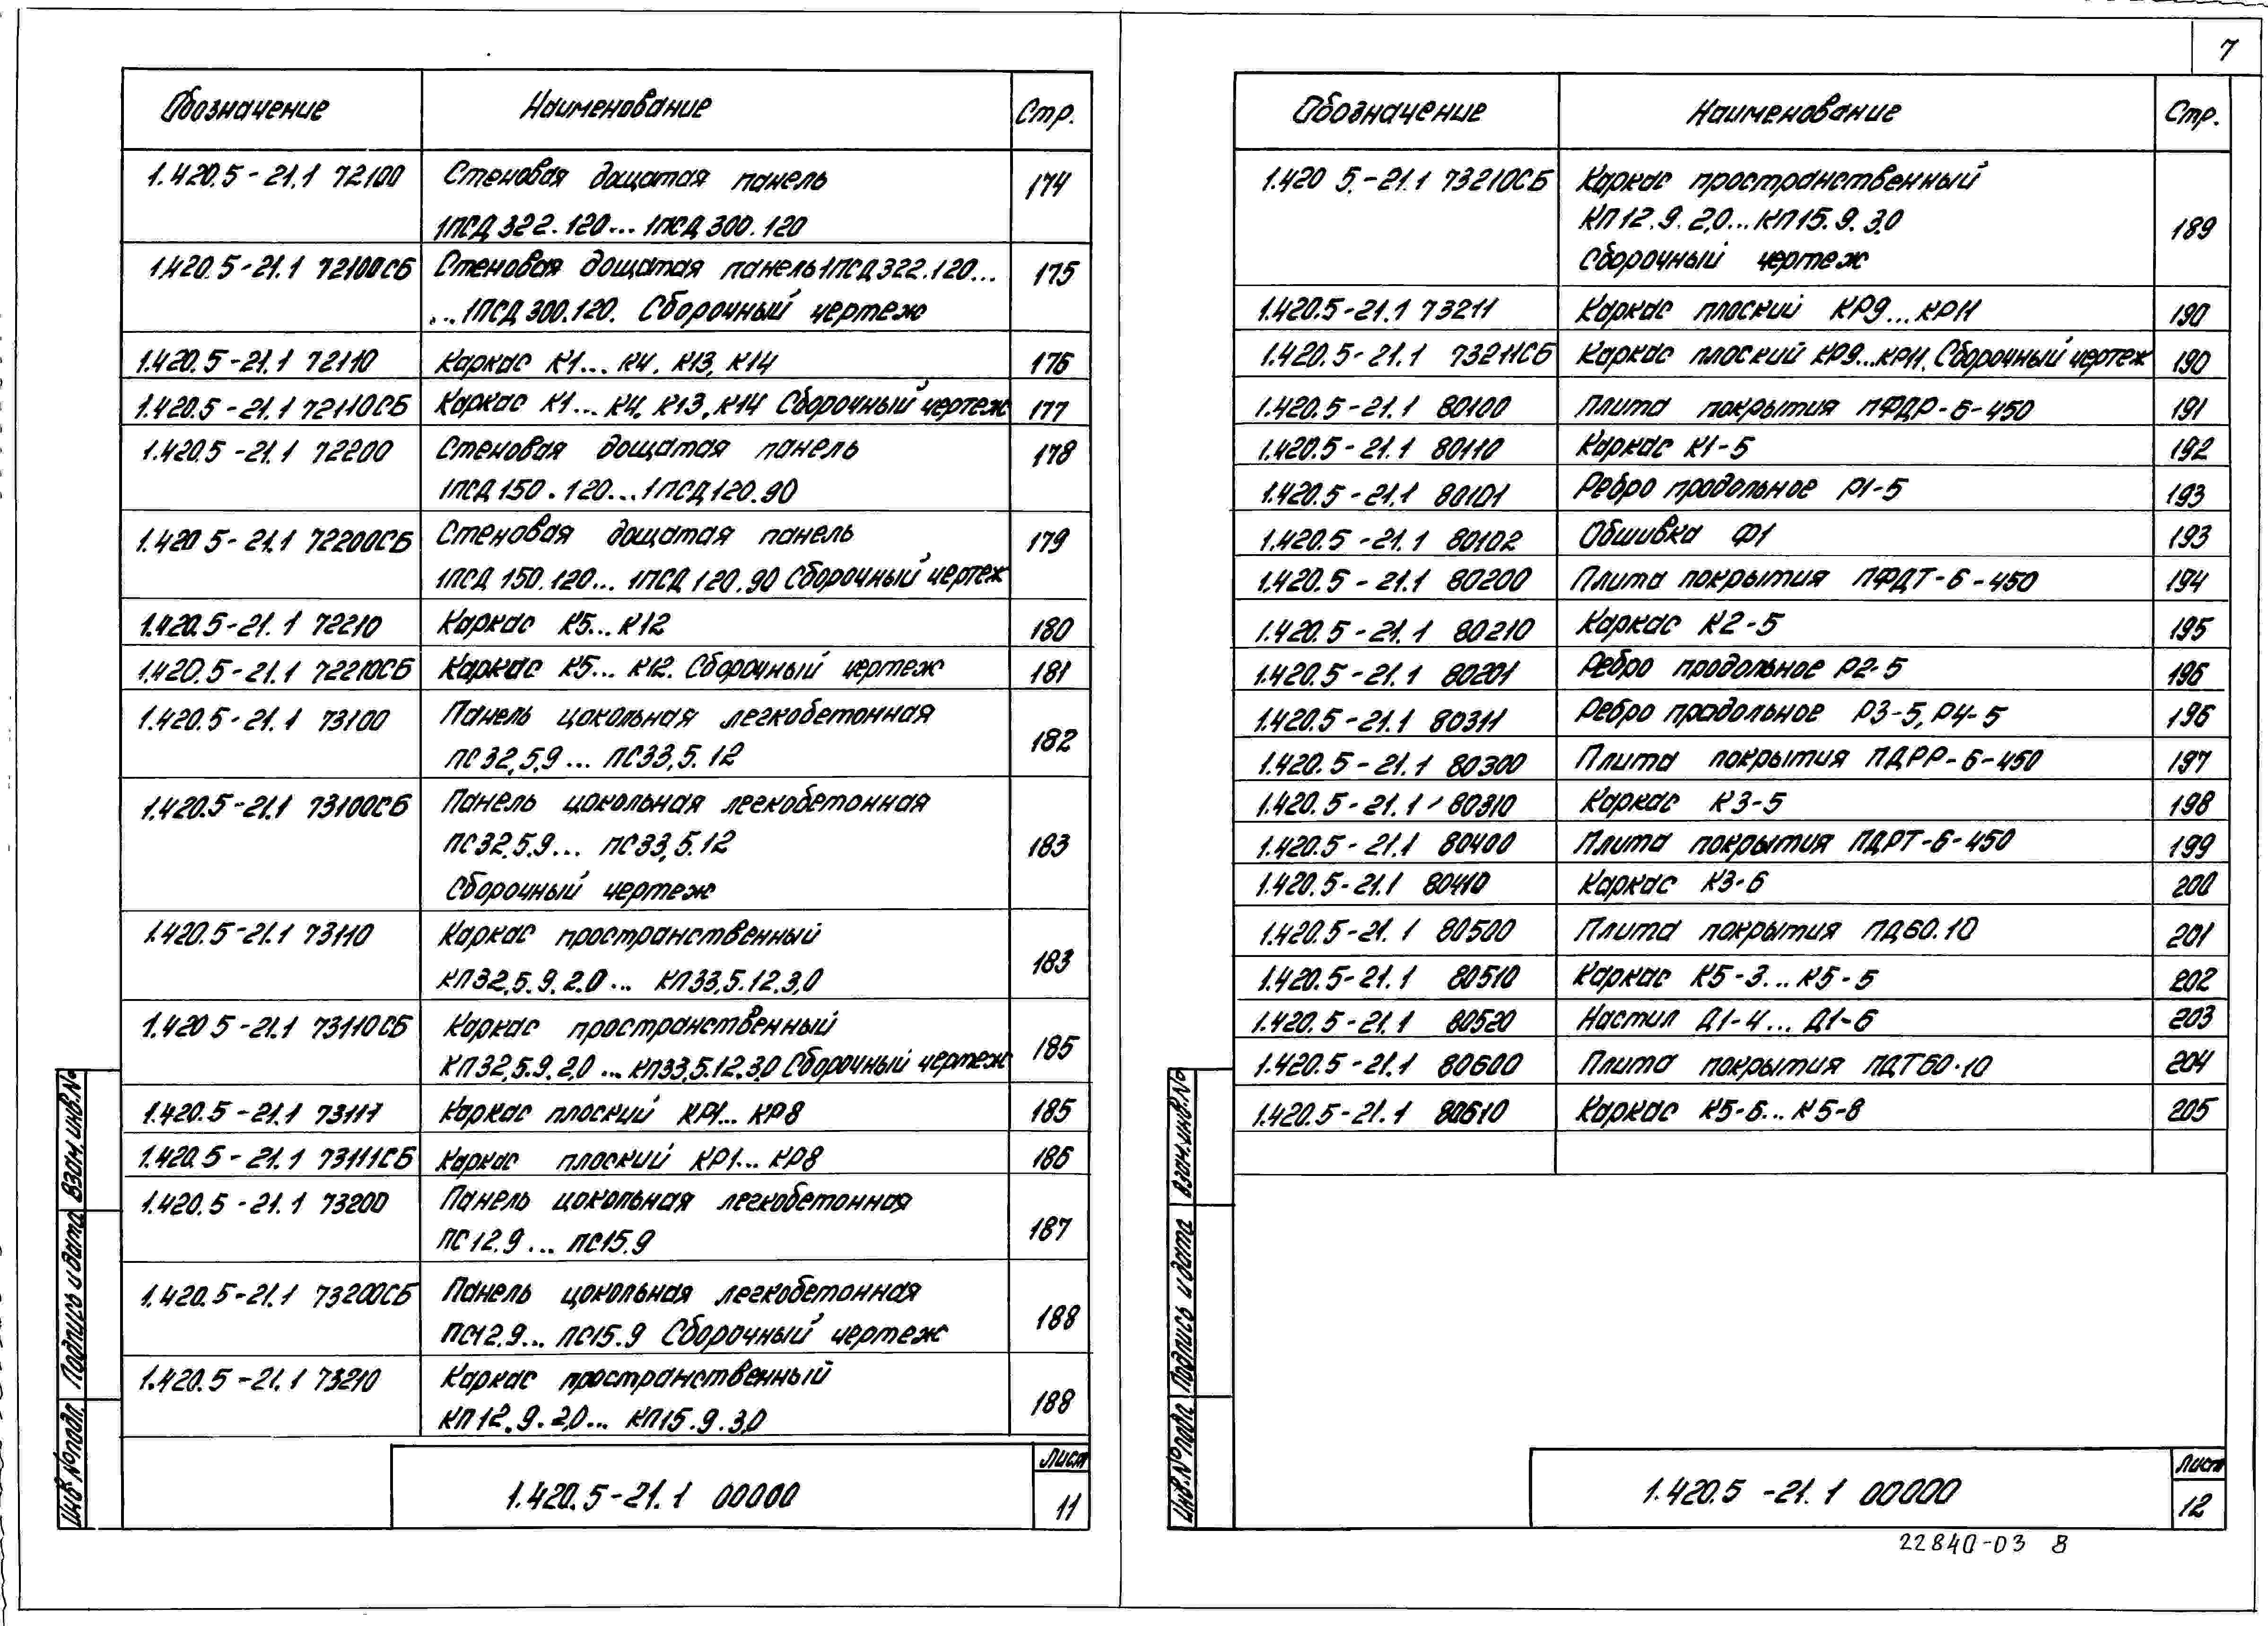 7
Обозначение Наименование Стр.
1.420.5-21.1 72100 Стеновая дощатая панель 174
1ПСД 322.120... 1ПСД 300.120
1.420.5-21.1 72100СБ Стеновая дощатая панель 1ПСД 322.120... 175
...1ПСД 300.120. Сборочный чертеж
1.420.5-21.1 72110 Каркас К1... К4, К13, К14 176
1.420.5-21.1 72110СБ Каркас К1... К4, К13, К14 Сборочный чертеж 177
1.420.5-21.1 72200 Стеновая дощатая панель 178
1ПСД 150.120...1ПСД 120.90
1.420 5-21.1 72200СБ Стеновая дощатая панель 179
1ПСД 150.120... 1ПСД 120.90 Сборочный чертеж
1.420.5-21.1 72210 Каркас К5...К12 180
1.420.5-21.1 72210СБ Каркас К5... К12. Сборочный чертеж 181
1.420.5-21.1 73100 Панель цокольная легкобетонная 182
ПС32,5,9... ПС33,5.12
1.420.5-21.1 73100СБ Панель цокольная легкобетонная
ПС32,5.9... ПС33,5.12 183
Сборочный чертеж
1.420.5-21.1 73110 Каркас пространственный 183
КП32,5.9.2.0... КП33,5.12.3,0
1.420 5-21.1 73110СБ Каркас пространственный 185
КП32,5.9.2,0 ...КП33,5.12.3,0 Сборочный чертеж
1.420.5-21.1 73111 Каркас плоский КР1... КР8 185
1.420.5-21.1 73111СБ Каркас плоский КР1... КР8 186
1.420.5-21.1 73200 Панель цокольная легкобетонная 187
ПС12.9... ПС15.9
1.420.5-21.1 73200СБ Панель цокольная легкобетонная 188
ПС12.9... ПС15.9 Сборочный чертеж
1.420.5-21.1 73210 Каркас пространственный 188
КП12.9.2,0... КП15.9.3,0
1.420.5-21.1 00000 Лист 11
Инв.№подл. Подпись и дата Взам.инв.№
Обозначение Наименование Стр.
1.420 5.-21.1 73210СБ Каркас пространственный
КП12.9.2,0...КП15.9.3,0 189
Сборочный чертеж
1.420.5-21.1 73211 Каркас плоский КР9...КР11 190
1.420.5-21.1 73211СБ Каркас плоский КР9...КР11. Сборочный чертеж 190
1.420.5-21.1 80100 Плита покрытия ПФДР-6-450 191
1.420.5-21.1 80110 Каркас К1-5 192
1.420.5-21.1 80101 Ребро продольное Р1-5 193
1.420.5-21.1 80102 Обшивка Ф1 193
1.420.5-21.1 80200 Плита покрытия ПФДТ-6-450 194
1.420.5-21.1 80210 Каркас К2-5 195
1.420.5-21.1 80201 Ребро продольное Р2-5 196
1.420.5-21.1 80311 Ребро продольное Р3-5, Р4-5 196
1.420.5-21.1 80300 Плита покрытия ПДРР-6-450 197
1.420.5-21.1 80310 Каркас К3-5 198
1.420.5-21.1 80400 Плита покрытия ПДРТ-6-450 199
1.420.5-21.1 80410 Каркас К3-6 200
1.420.5-21.1 80500 Плита покрытия ПД60.10 201
1.420.5-21.1 80510 Каркас К5-3...К5-5 202
1.420.5-21.1 80520 Настил Д1-4... Д1-6 203
1.420.5-21.1 80600 Плита покрытия ПДТ60.10 204
1.420.5-21.1 80610 Каркас К5-6...К5-8 205
1.420.5-21.1 00000 Лист 12
Инв.№подл. Подпись и дата Взам.инв.№
22840-03 8